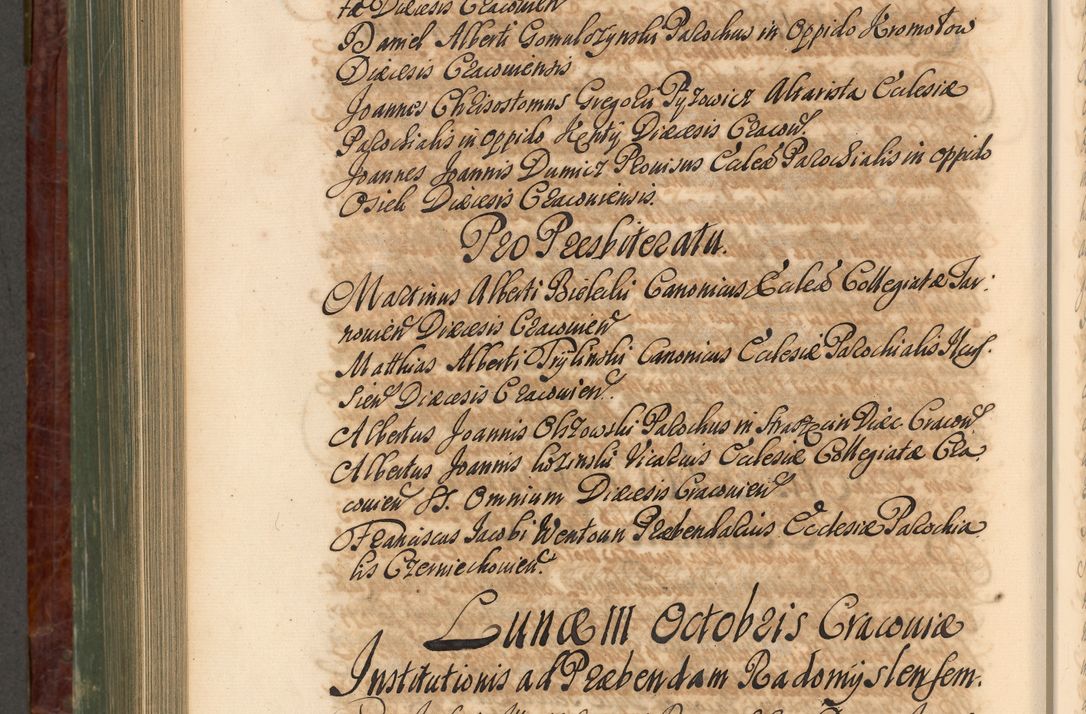 tæ Diæcesis Cracovien
Daniel Alberti Gomulczynski Parochus in Oppido Kromołow
Diæcesis Cracoviensis
Joannes Chrisostomus Gregorii Pyzowicz Altarista Ecclesiæ
Parochialis in oppido Kenty Diæcesis Cracov.
Joannes Joannis Dumicz Provisus Eccleæ Parochialis in oppido
Osiek Diæcesis Cracoviensis.
Pro Presbiteratu.
Martinus Alberti Bielecki Canonicus Eccleæ Collegiatæ Tar-
novien Diæcesis Cracovien
Matthias Alberti Trylinski Canonicus Ecclesiæ Parochialis
Sien Diæcesis Cracovien.
Albertus Joannis Olszowski Parochus in Diæc Cracov
Albertus Joannis Łozinski Vicarius Ecclesiæ Collegiatæ Cra
covien SS. Omnium Diæcesis Cracovien
Franciscus Jacobi Wentoun Præbendarius Ecclesiæ Parochia
lis Czerniechovien.
Lunæ III Octobris Cracoviæ
Institutionis ad Præbendam Radomyslensem.